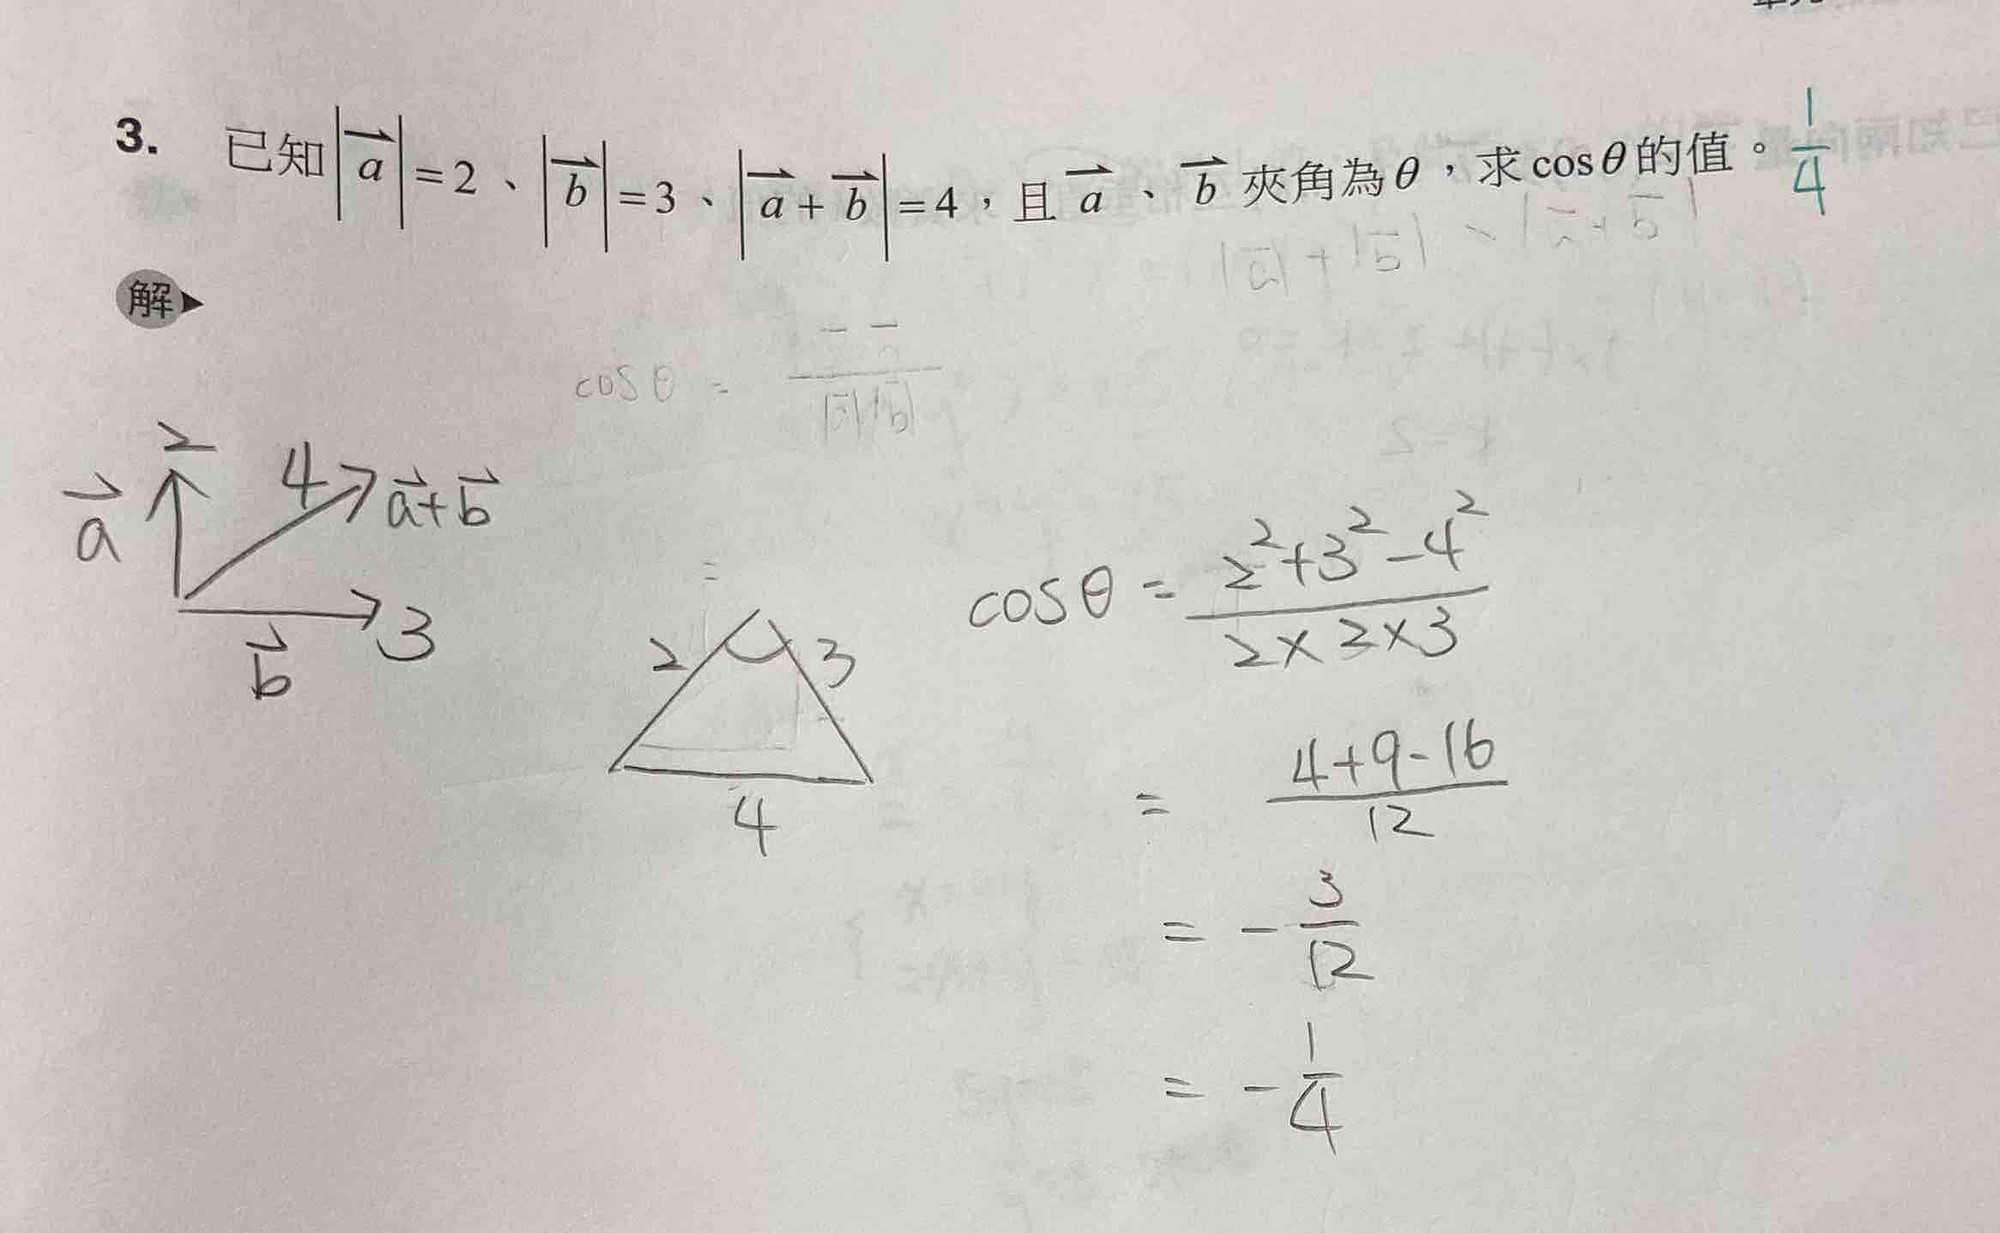 3. 已知|a⃗|=2、|b⃗|=3、|a⃗+b⃗|=4，且a⃗、b⃗夾角為θ，求cosθ的值。 1/4
|a⃗|+|b⃗|
解
cosθ =
2
4
a⃗
a⃗+b⃗
3
b⃗
2
3
4
cosθ = (2²+3²-4²)/(2×2×3)
= (4+9-16)/12
= -3/12
= -1/4